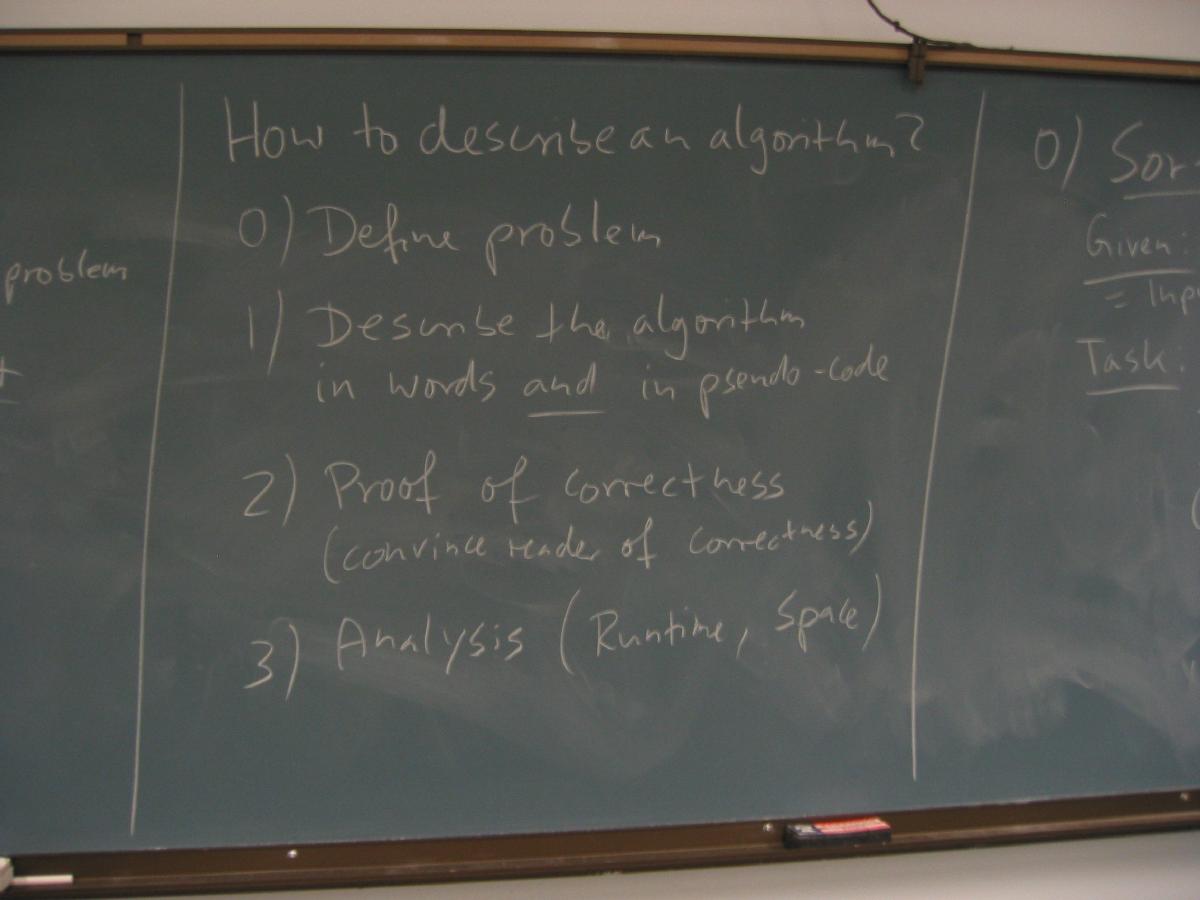 problem
How to describe an algorithm?
0) Define problem
1) Describe the algorithm
in words and in pseudo-code
2) Proof of correctness
(convince reader of correctness)
3) Analysis (Runtime, Space)
0)
Given:
=
Task: